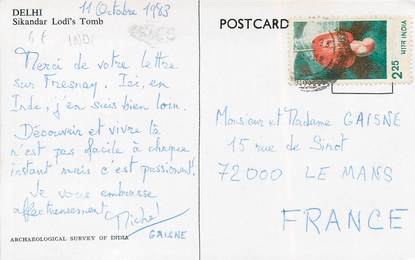 DELHI
Sikandar Lodi's Tomb
11 Octobre 1983
IND
Merci de votre lettre
sur Fresnay. Ici, en
Inde, j'en suis bien loin.
Découvrir et vivre là
n'est pas facile à chaque
instant mais c'est passionnant.
Je vous embrasse
affectueusement
Michel
GAISNE
ARCHAEOLOGICAL SURVEY OF INDIA
POSTCARD
भारत INDIA
2.25
Monsieur et Madame GAISNE
15 rue de
72000 LE MANS
FRANCE